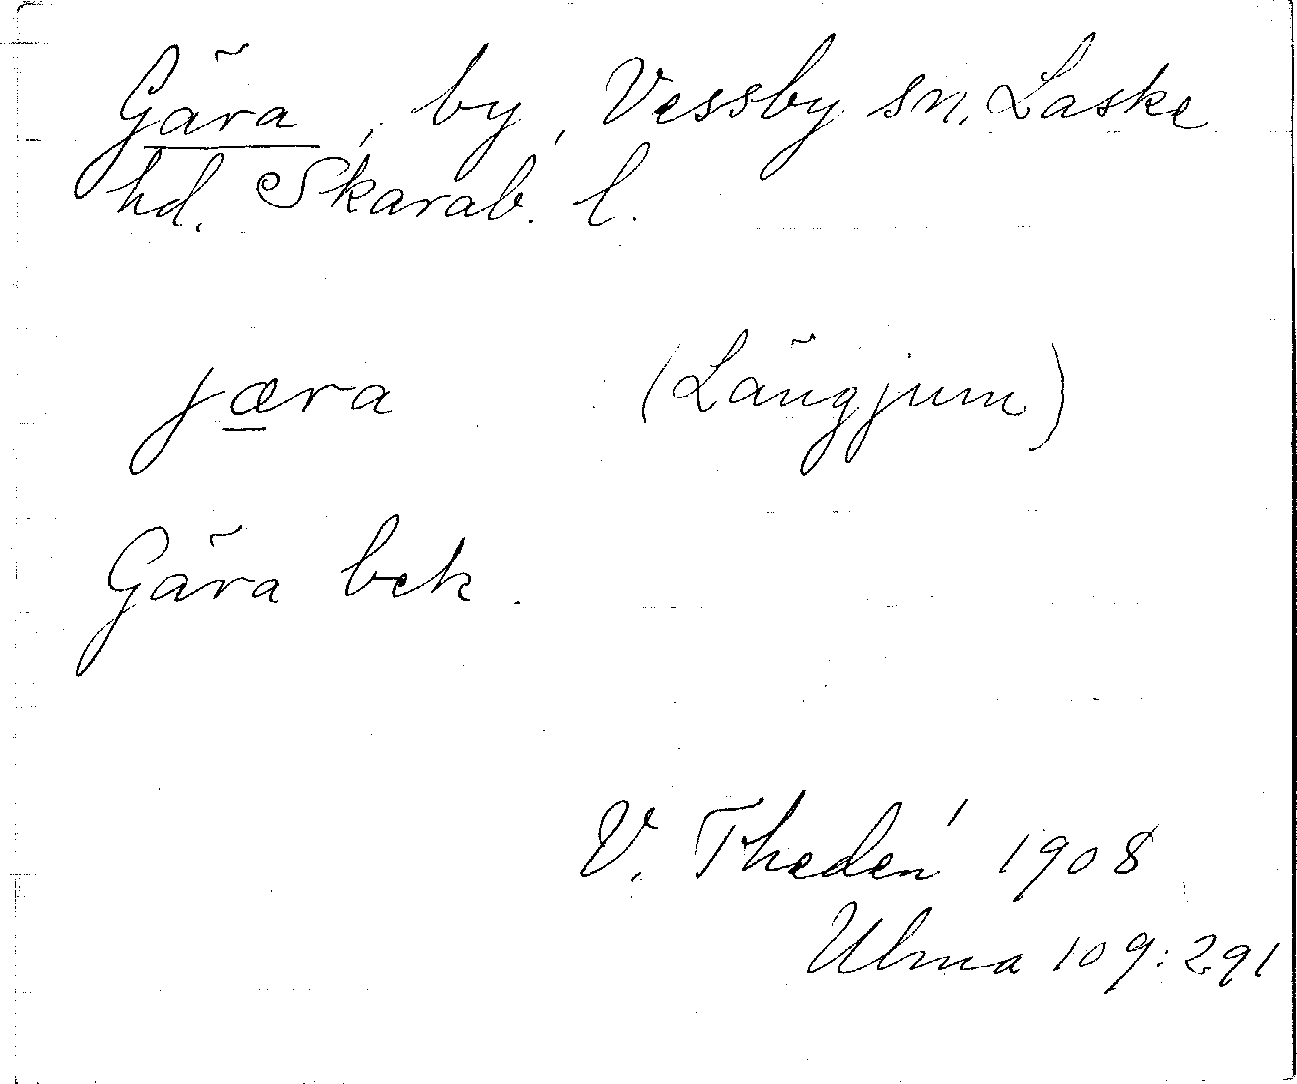 Gära, by, Vessby sn. Laske
hd. Skarab. l.
jæra (Längjum)
Gära bek.
V. Thedén 1908
Ulma 109:291